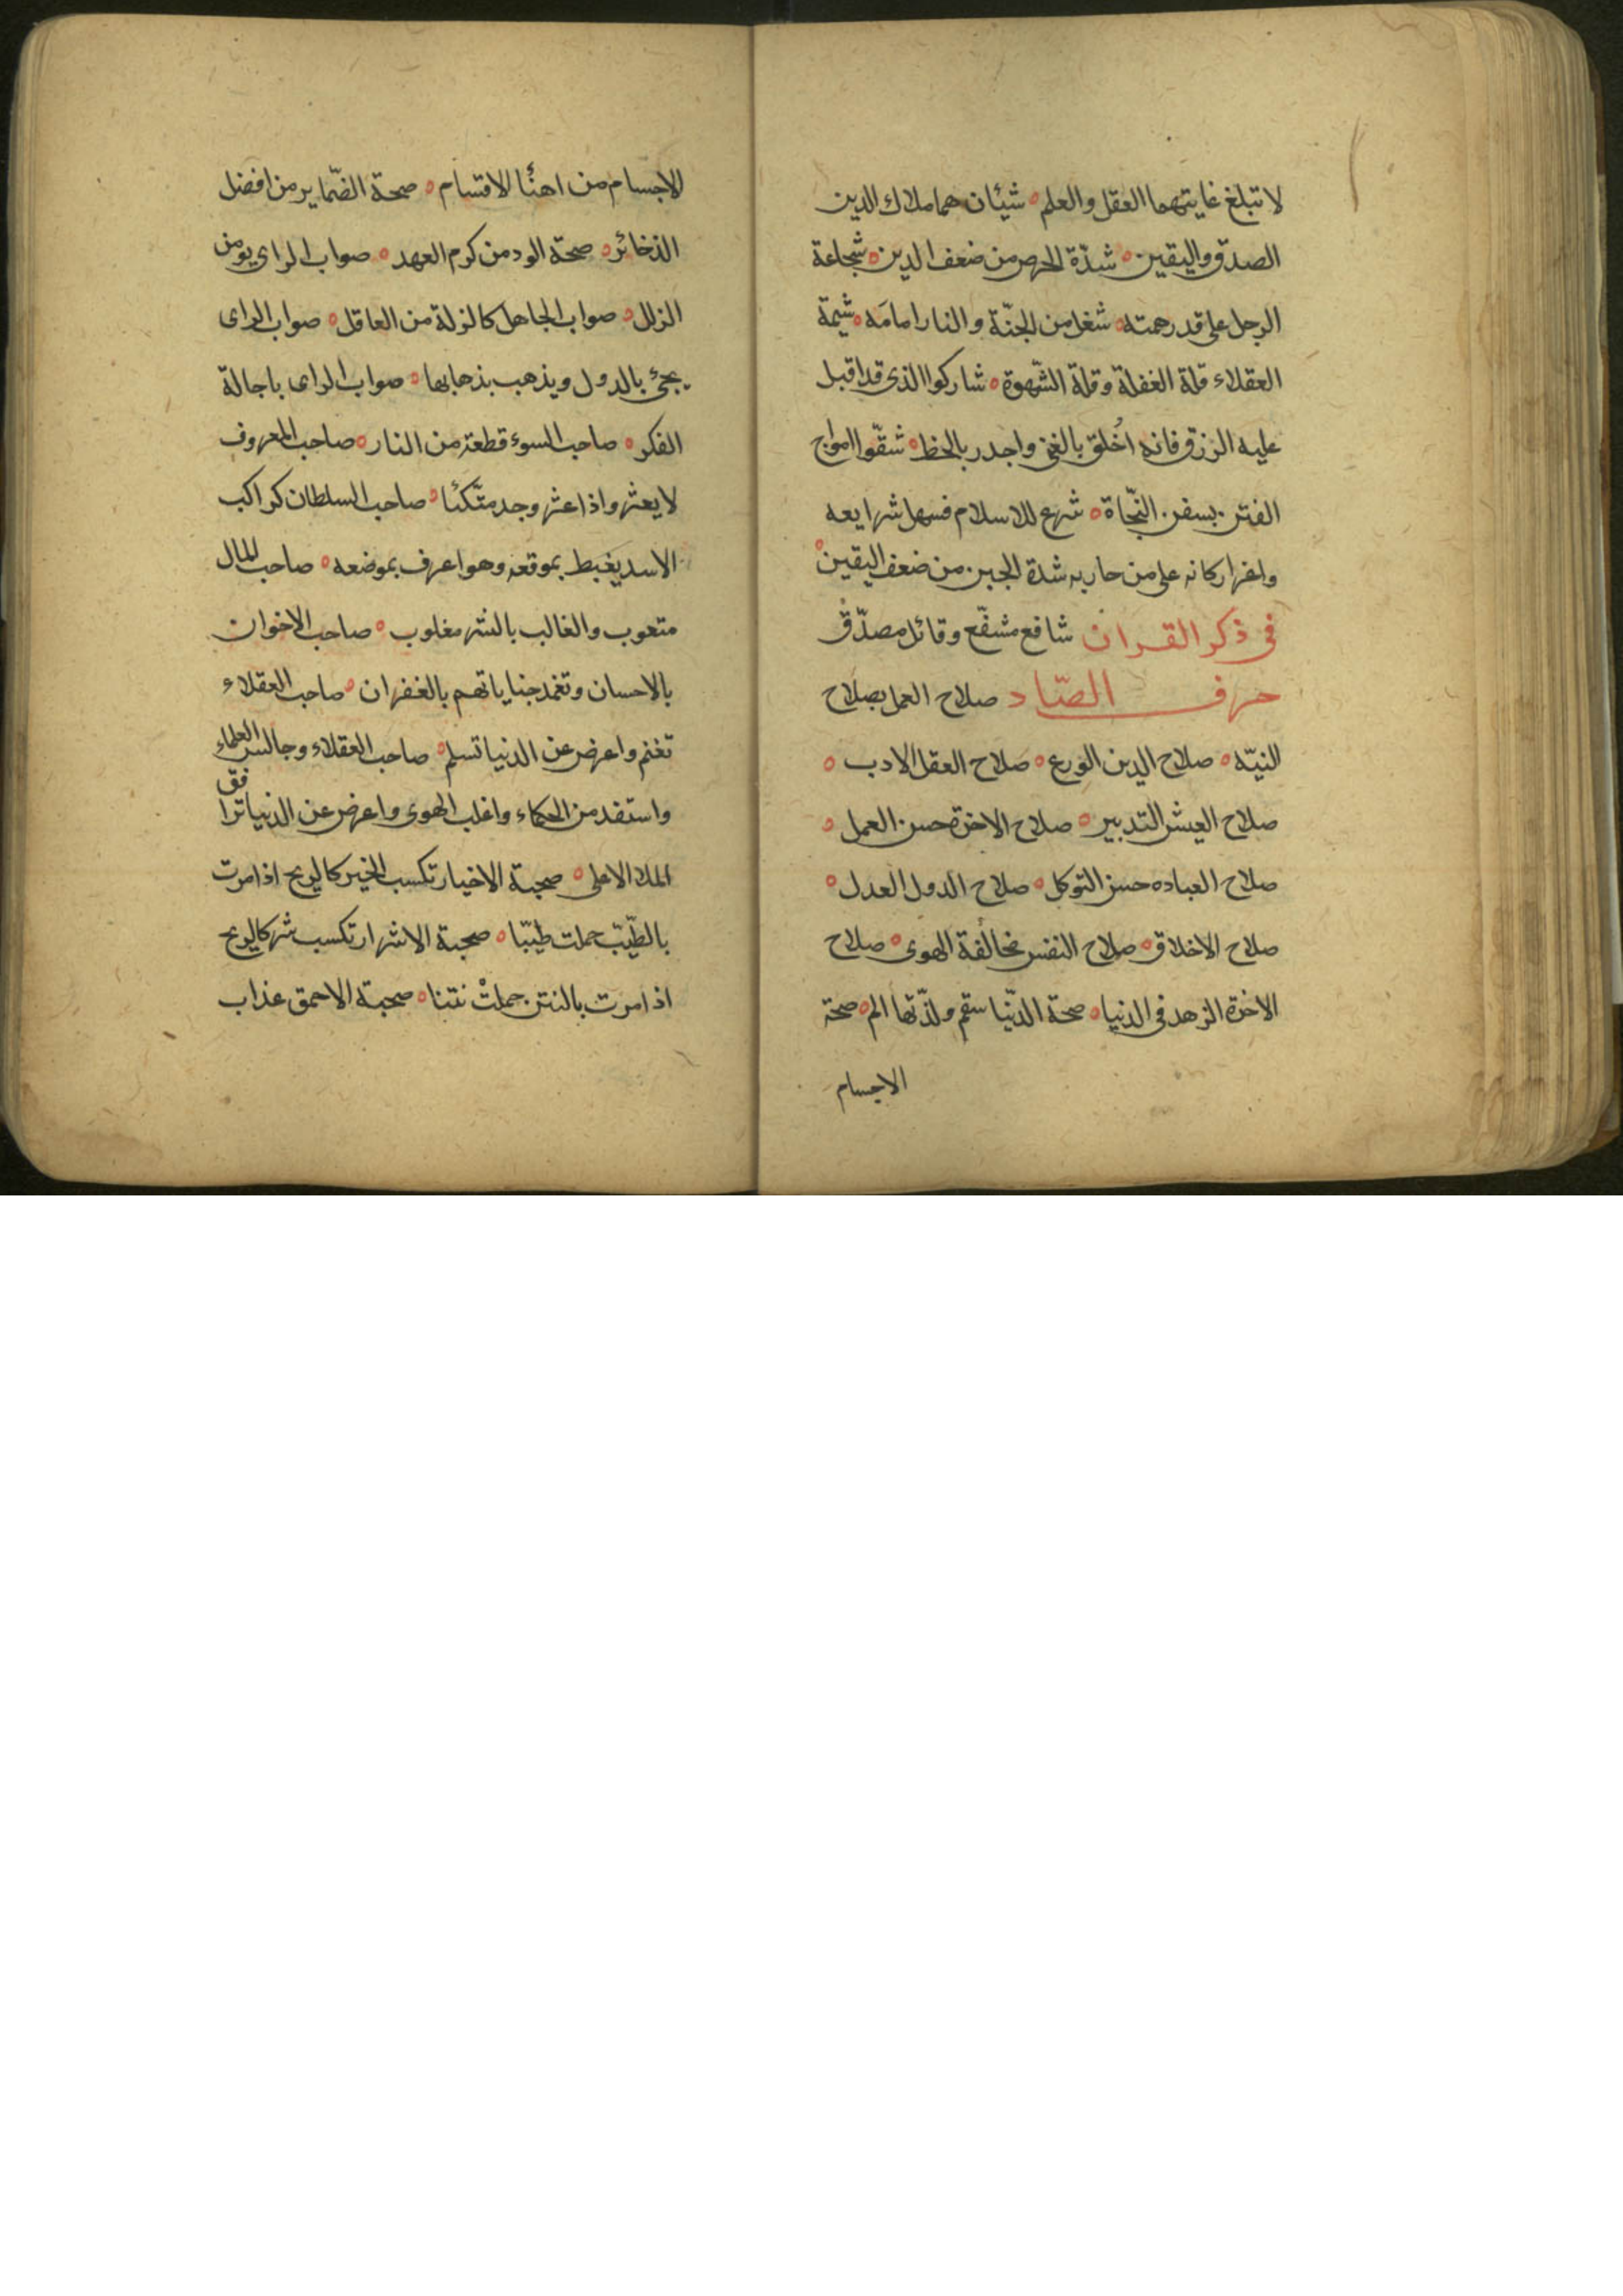 لا تبلغ غايتهما العقل والعلم ه شيئان هما ملاك الدين
الصدق واليقين ه شدّة الحرص من ضعف الدين ه شجاعة
الرجل على قدر همته ه شغل من الجنّة والنار امامَه ه شيمة
العقلاء قلة الغفلة وقلة الشّهوة ه شاركوا الذى قد اقبل
عليه الرزق فانه اخلق بالغنى واجدر بالحظ ه شقّوا امواج
الفتن بسفن النّجاة ه شرع للاسلام فسهل شرايعه
واعز اركانه على من حاربه شدة الجبن من ضعف اليقين ه
فى ذكر القران شافع مشفّع وقائل مصدّق
حرف الصّاد صلاح العمل بصلاح
النيّه ه صلاح الدين الورع ه صلاح العقل الادب ه
صلاح العيش التدبير ه صلاح الاخرة حسن العمل ه
صلاح العباده حسن التوكل ه صلاح الدول العدل ه
صلاح الاخلاق ه صلاح النفس مخالفة الهوى ه صلاح
الاخرة الزهد فى الدنيا ه صحة الدّنيا سقم ولذّتها الم ه صحة
الاجسام
الاجسام من اهنُا الاقتسام ه صحة الضّماير من افضل
الذخائر ه صحة الود من كرم العهد ه صواب الراى يومن
الزلل ه صواب الجاهل كالزلة من العاقل ه صواب الراى
يجئ بالدول ويذهب بذهابها ه صواب الراى باجالة
الفكر ه صاحب السوء قطعة من النار ه صاحب المعروف
لا يعثر واذا عثر وجد متّكئا ه صاحب السلطان كراكب
الاسد يغبط بموقعه وهو اعرف بموضعه ه صاحب المال
متعوب والغالب بالشر مغلوب ه صاحب الاخوان
بالاحسان وتغمد جناياتهم بالغفران ه صاحب العقلاء
تغنم واعرض عن الدنيا تسلم ه صاحب العقلاء وجالس العلماء
واستفد من الحكماء واغلب الهوى واعرض عن الدنيا ترافق
الملا الاعلى ه صحبة الاخيار تكسب الخير كالريح اذا مرت
بالطّيّب حملت طيّبا ه صحبة الاشرار تكسب شر كالريح
اذا مرت بالنتن حملتْ نتنا ه صحبة الاحمق عذاب